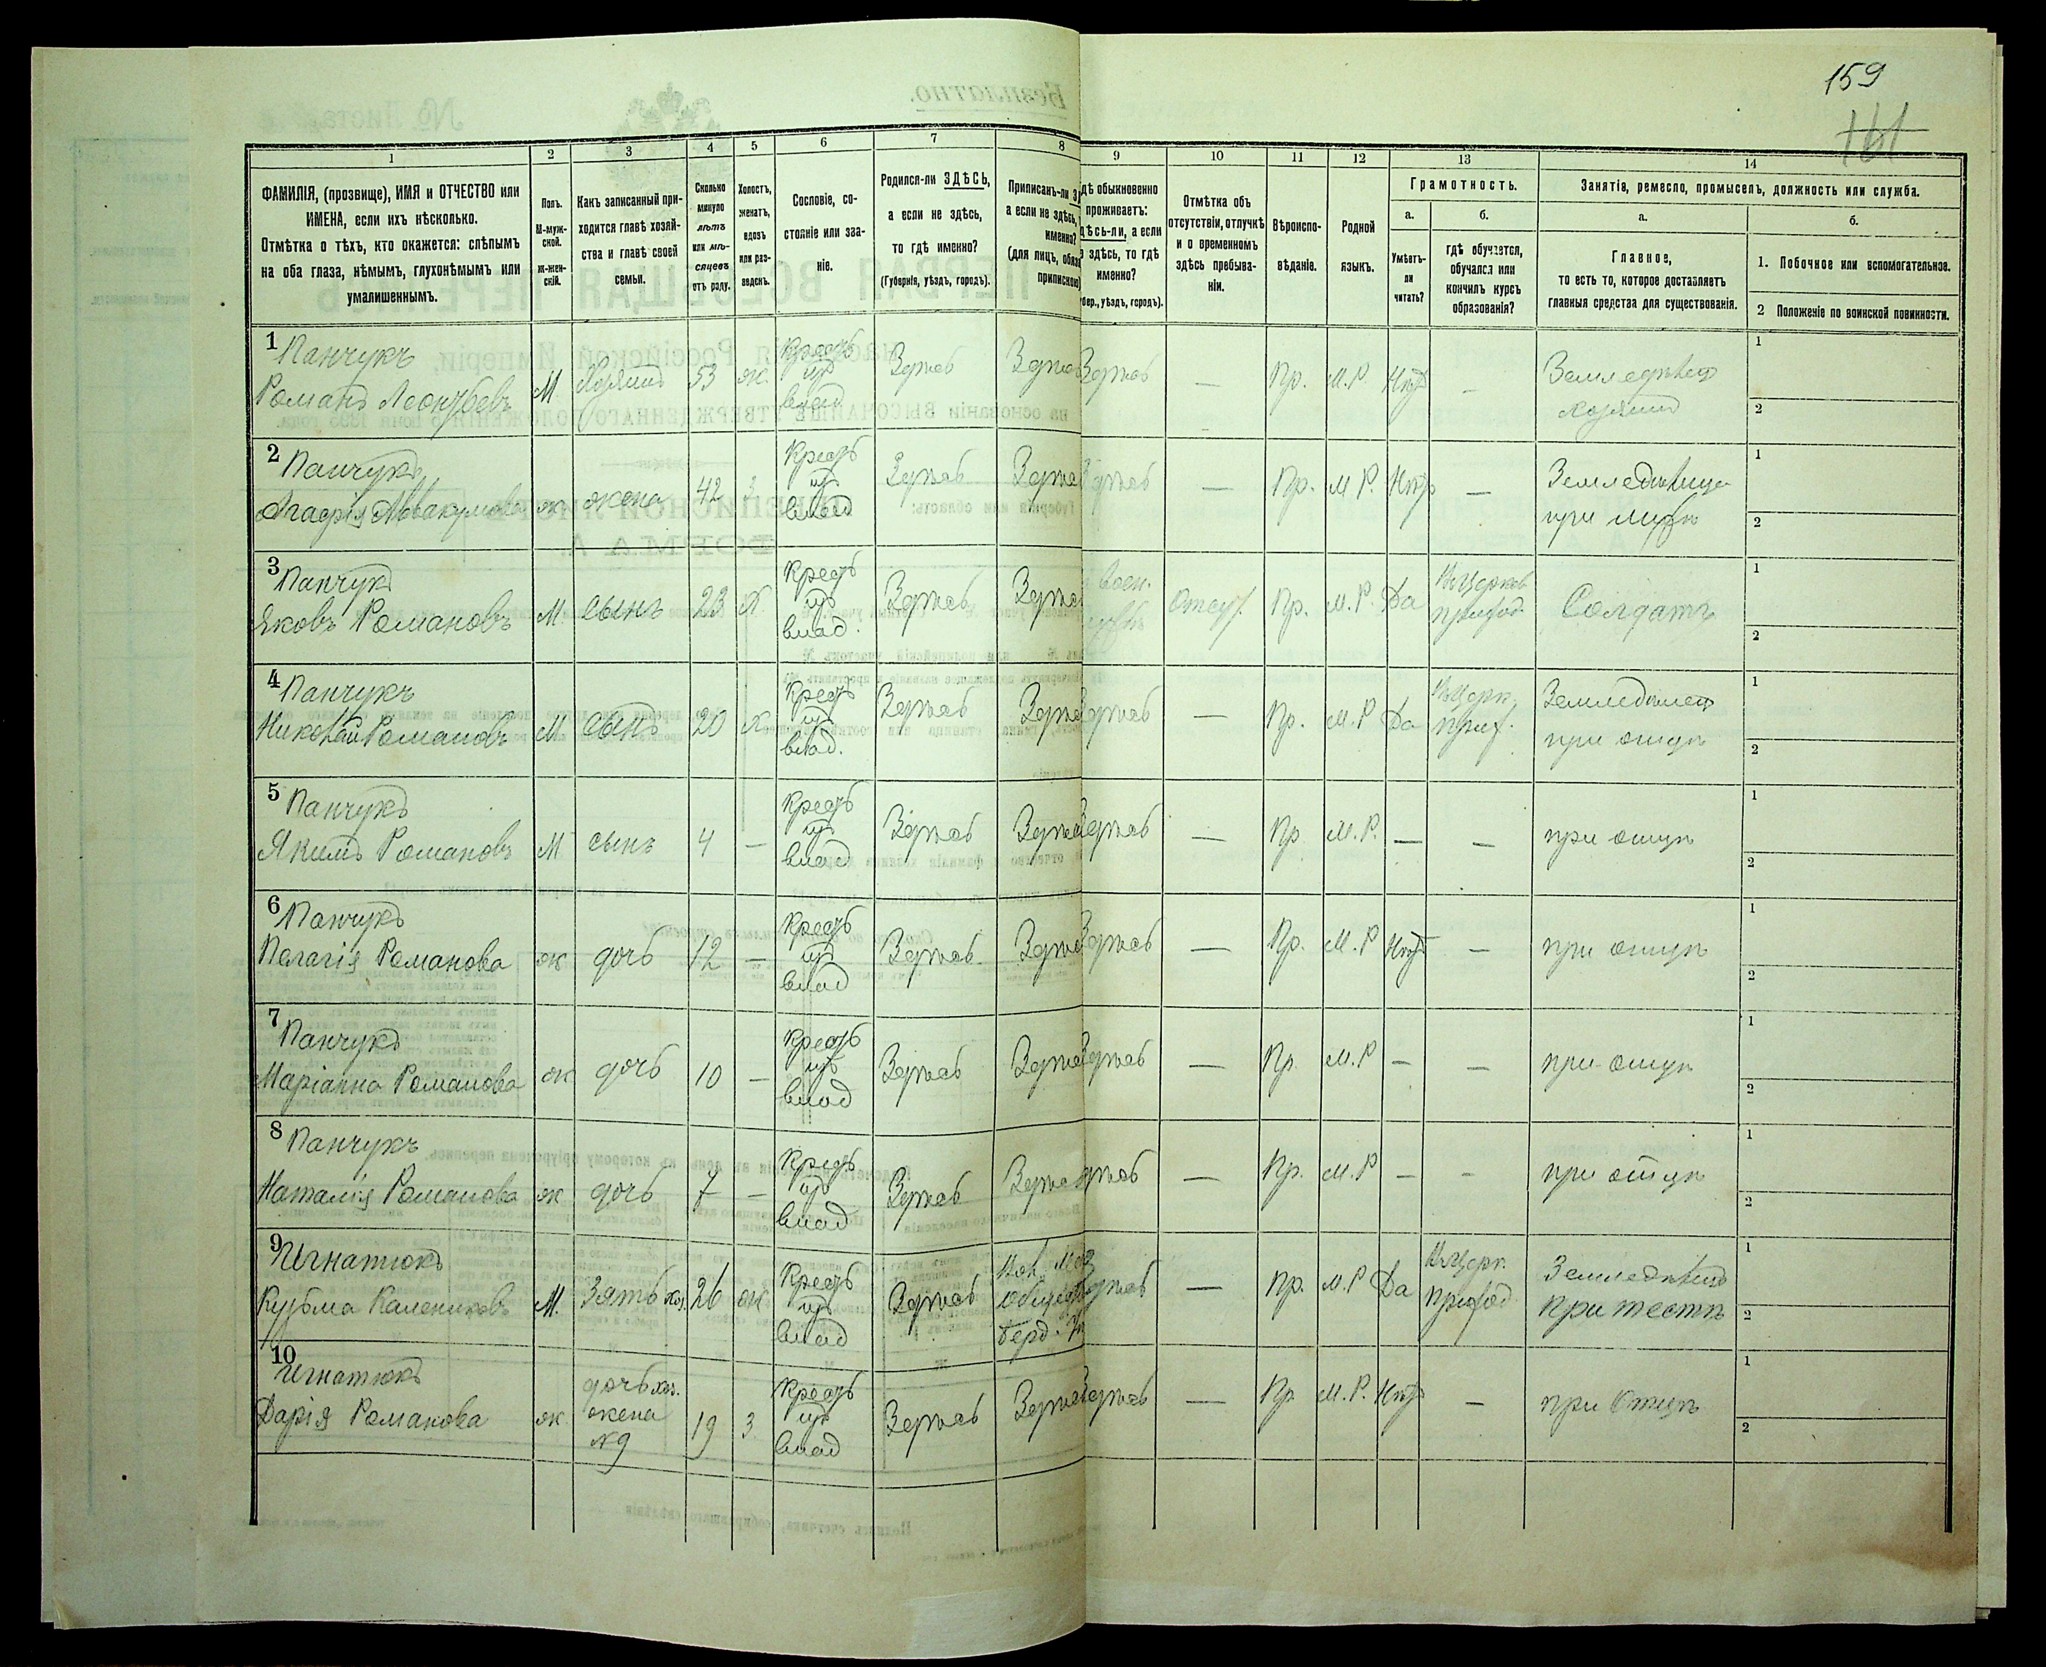 159
1 2 3 4 5 6 7 8 9 10 11 12 13 14
ФАМИЛІЯ, (прозвище), ИМЯ и ОТЧЕСТВО или
ИМЕНА, если ихъ нѣсколько.
Отмѣтка о тѣхъ, кто окажется: слѣпымъ
на оба глаза, нѣмымъ, глухонѣмымъ или
умалишеннымъ.
Полъ.
М-муж-
ской.
ж-жен-
скій.
Какъ записанный при-
ходится главѣ хозяй-
ства и главѣ своей
семьи.
Сколько
минуло
лѣтъ
или мѣ-
сяцевъ
отъ роду.
Холостъ,
женатъ,
вдовъ
или раз-
веденъ.
Сословіе, со-
стояніе или зва-
ніе.
Родился-ли ЗДѢСЬ,
а если не здѣсь,
то гдѣ именно?
(Губернія, уѣздъ, городъ).
Приписанъ-ли
а если не здѣсь,
именно?
(для лицъ,
дѣ обыкновенно
проживаетъ:
дѣсь-ли, а если
здѣсь, то гдѣ
именно?
бер., уѣздъ, городъ).
Отмѣтка объ
отсутствіи, отлучкѣ
и о временномъ
здѣсь пребыва-
ніи.
Вѣроиспо-
вѣданіе.
Родной
языкъ.
Грамотность.
а.
Умѣетъ-
ли
читать?
б.
гдѣ обучается,
обучался или
кончилъ курсъ
образованія?
Занятія, ремесло, промыселъ, должность или служба.
а.
Главное,
то есть то, которое доставляетъ
главныя средства для существованія.
б.
1. Побочное или вспомогательное.
2 Положеніе по воинской повинности.
1 Панчукъ
Романъ Леонтьевъ М Хозяинъ 53 ж. Крестъ из влад Здѣсь Здѣсь Здѣсь — Пр. М.Р. Нѣтъ — Земледѣлец хозяинъ 1 2
2 Панчукъ
Агафія Аввакумова ж жена 42 з Крестъ из влад. Здѣсь Здѣсь Здѣсь — Пр. М.Р. Нѣтъ — Земледѣлица при мужѣ 1 2
3 Панчукъ
Яковъ Романовъ М сынъ 23 Х Крестъ из влад. Здѣсь Здѣсь Отсут. Пр. М.Р. Да Въ Церков. приход. Солдатъ 1 2
4 Панчукъ
Николай Романовъ М сынъ 20 Х Крестъ из влад. Здѣсь Здѣсь Здѣсь — Пр. М.Р Да Въ Церк. прих. Земледѣлец при отцѣ 1 2
5 Панчукъ
Якимъ Романовъ М сынъ 4 — Крестъ из влад Здѣсь Здѣсь Здѣсь — Пр. М.Р. — — при отцѣ 1 2
6 Панчукъ
Пелагія Романова ж дочь 12 — Крестъ из влад Здѣсь Здѣсь Здѣсь — Пр. М.Р Нѣтъ — при отцѣ 1 2
7 Панчукъ
Маріанна Романова ж дочь 10 — Крестъ из влад Здѣсь Здѣсь Здѣсь — Пр. М.Р — — при отцѣ 1 2
8 Панчукъ
Наталія Романова ж дочь 7 — Крестъ из влад Здѣсь Здѣсь Здѣсь — Пр. М.Р — — при отцѣ 1 2
9 Игнатюкъ
Кузьма Калениковъ М. Зять хоз. 26 ж Крестъ из влад Здѣсь Здѣсь — Пр. М.Р Да Въ Церк. приход Земледѣлец при тестѣ 1 2
10 Игнатюкъ
Дарія Романова ж дочь хоз. жена №9 19 з Крестъ из влад Здѣсь Здѣсь Здѣсь — Пр М.Р. Нѣтъ — при Отцѣ 1 2